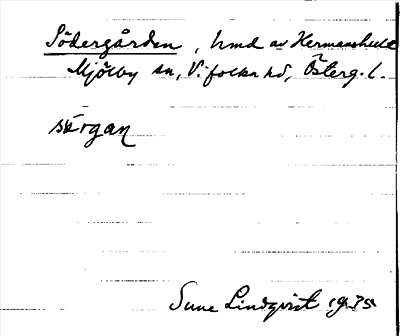 Södergården, hmd av Hermanshult
Mjölby sn, Vifolka hd, Österg. l.
sö́rgan
Sune Lindqvist 1935